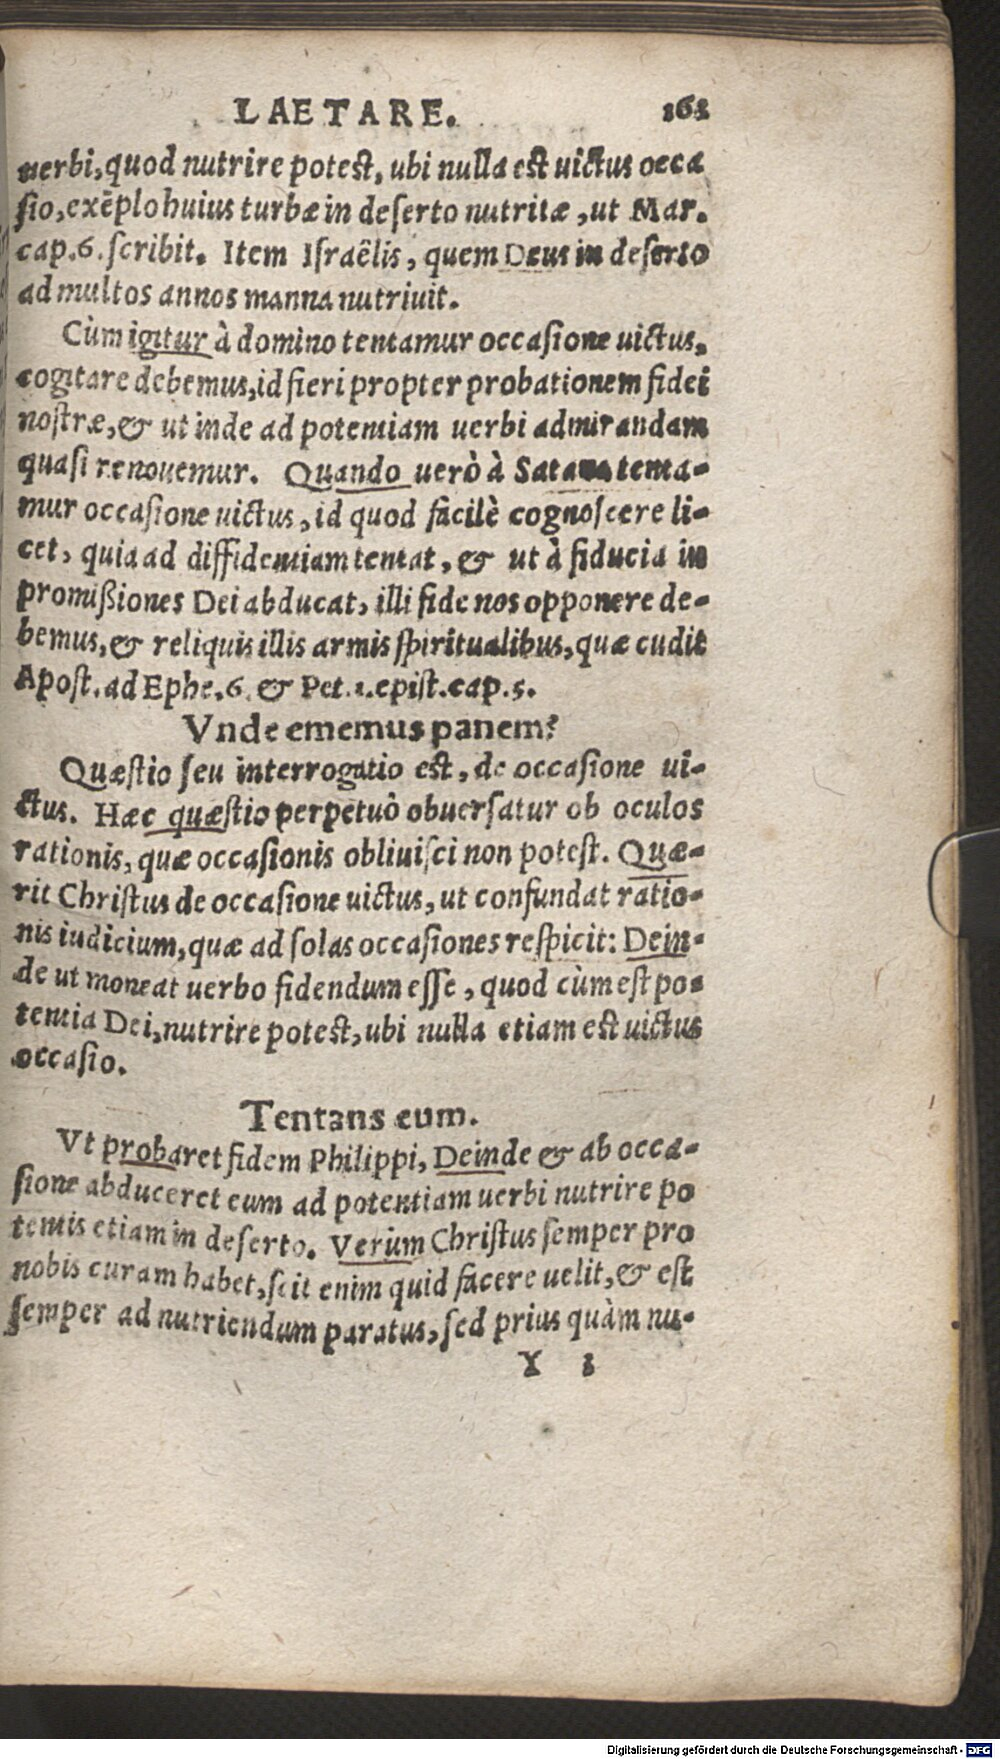 LAETARE. 161
uerbi, quod nutrire potest, ubi nulla est uictus occa
sio, exẽplo huius turbæ in deserto nutritæ, ut Mar.
cap. 6. scribit. Item Israêlis, quem Deus in deserto
ad multos annos manna nutriuit.
Cùm igitur à domino tentamur occasione uictus,
cogitare debemus, id fieri propter probationem fidei
nostræ, & ut inde ad potentiam uerbi admirandam
quasi renouemur. Quando uerò à Satana tenta-
mur occasione uictus, id quod facilè cognoscere li-
cet, quia ad diffidentiam tentat, & ut à fiducia in
promißiones Dei abducat, illi fide nos opponere de-
bemus, & reliquis illis armis spiritualibus, quæ cudit
Apost. ad Ephe. 6. & Pet. 1. epist. cap. 5.
Vnde ememus panem?
Quæstio seu interrogatio est, de occasione ui-
ctus. Hæc quæstio perpetuò obuersatur ob oculos
rationis, quæ occasionis obliuisci non potest. Quæ-
rit Christus de occasione uictus, ut confundat ratio-
nis iudicium, quæ ad solas occasiones respicit: Dein-
de ut moneat uerbo fidendum esse, quod cùm est po-
tentia Dei, nutrire potest, ubi nulla etiam est uictus
occasio.
Tentans eum.
Vt probaret fidem Philippi, Deinde & ab occa-
sione abduceret eum ad potentiam uerbi nutrire po
tentis etiam in deserto. Verùm Christus semper pro
nobis curam habet, scit enim quid facere uelit, & est
semper ad nutriendum paratus, sed prius quàm nu-
Y 1
Digitalisierung gefördert durch die Deutsche Forschungsgemeinschaft - DFG